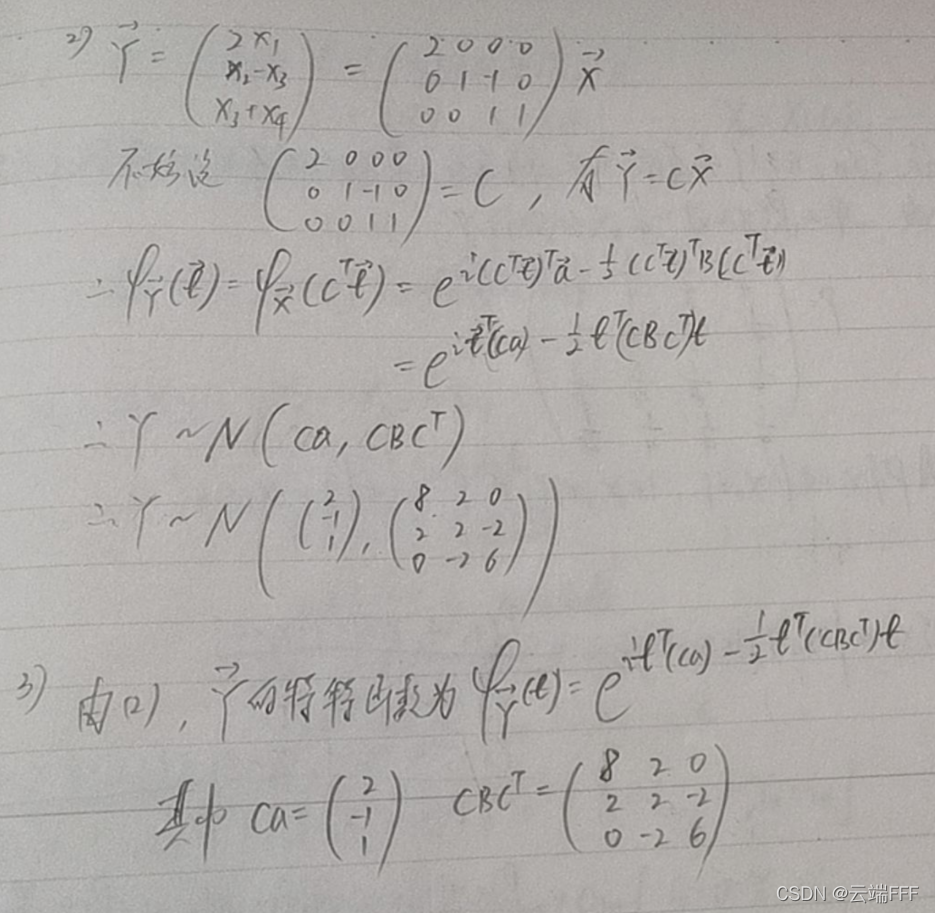 2) \vec{Y} = \begin{pmatrix} 2x_1 \\ x_2-x_3 \\ x_3+x_4 \end{pmatrix} = \begin{pmatrix} 2 & 0 & 0 & 0 \\ 0 & 1 & -1 & 0 \\ 0 & 0 & 1 & 1 \end{pmatrix} \vec{X}
不妨设 \begin{pmatrix} 2 & 0 & 0 & 0 \\ 0 & 1 & -1 & 0 \\ 0 & 0 & 1 & 1 \end{pmatrix} = C , 有 \vec{Y} = C\vec{X}
∴ φ_{\vec{Y}}(\vec{t}) = φ_{\vec{X}}(C^T\vec{t}) = e^{i(C^T\vec{t})^T\vec{a} - \frac{1}{2}(C^T\vec{t})^TB(C^T\vec{t})}
= e^{i\vec{t}^T(Ca) - \frac{1}{2}t^T(CBC^T)t}
∴ Y ~ N(Ca, CBC^T)
∴ Y ~ N\left( \begin{pmatrix} 2 \\ -1 \\ 1 \end{pmatrix}, \begin{pmatrix} 8 & 2 & 0 \\ 2 & 2 & -2 \\ 0 & -2 & 6 \end{pmatrix} \right)
3) 由(2), \vec{Y}的特特函数为 φ_{\vec{Y}}(t) = e^{it^T(Ca) - \frac{1}{2}t^T(CBC^T)t}
其中 Ca = \begin{pmatrix} 2 \\ -1 \\ 1 \end{pmatrix} CBC^T = \begin{pmatrix} 8 & 2 & 0 \\ 2 & 2 & -2 \\ 0 & -2 & 6 \end{pmatrix}
CSDN @云端FFF